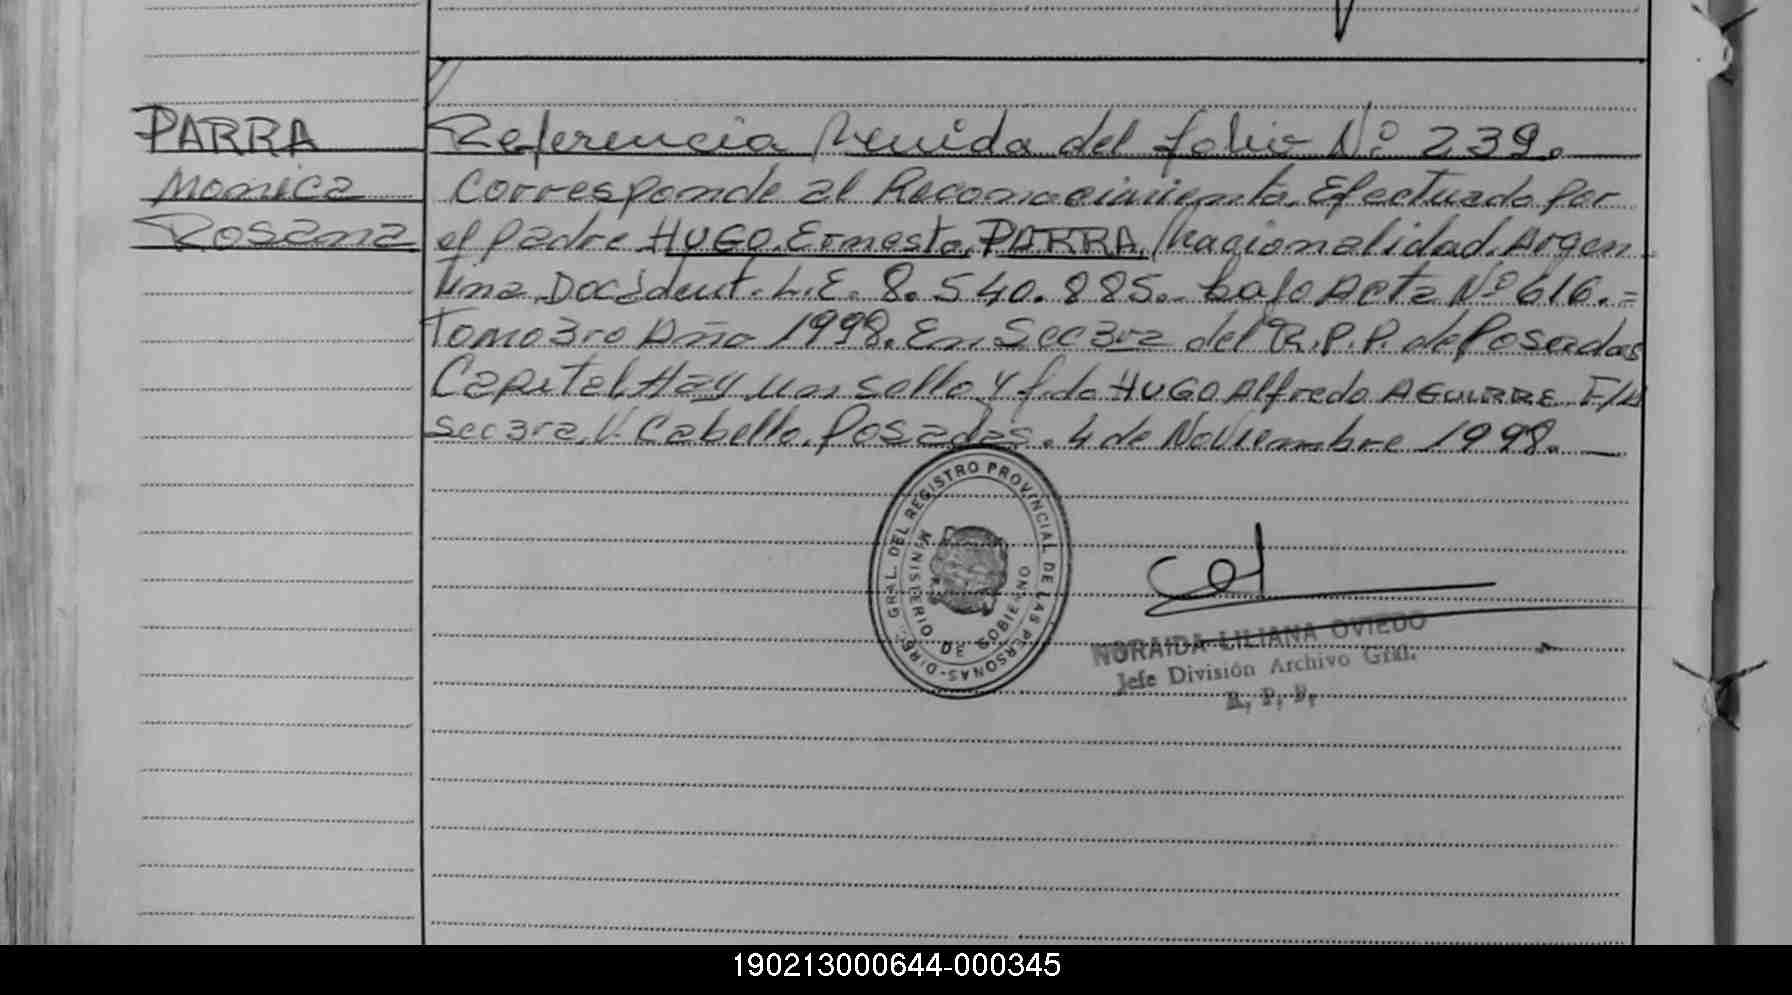 PARRA
Monica
Rosana
Referencia Venida del folio Nº 239.
Corresponde al Reconocimiento Efectuado por
el padre HUGO Ernesto PARRA, Nacionalidad Argen-
tina Doc ident. L.E. 8.540.885. bajo Acta Nº 616.=
Tomo 3ro Año 1998. En Sec 3ra del R.P.P. de Posadas
Capital Hay un sello y fdo HUGO Alfredo AGUIRRE F/A
Sec 3ra V. Cabello. Posadas. 4 de Noviembre 1998.
DIREC. GRAL. DEL REGISTRO PROVINCIAL DE LAS PERSONAS-
MINISTERIO DE GOBIERNO
NORAIDA LILIANA OVIEDO
Jefe División Archivo Gral.
R. P. P.
190213000644-000345